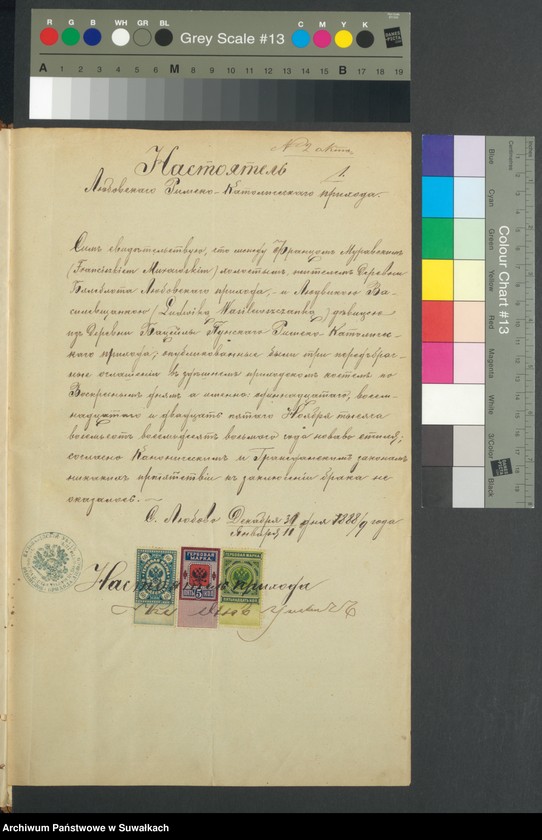 R G B WH GR BL
Grey Scale #13
C M Y K
A 1 2 3 4 5 6 M 8 9 10 11 12 13 14 15 B 17 18 19
DANES PICTA
Colour Chart #13
Blue Cyan Green Yellow Red Magenta White 3/Color Black
Centimetres
N 2 акта
1.
Настоятель
Любовскаго Римско-Католическаго прихода.
Симъ свидѣтельствую, что между Францомъ Муравскимъ
(Franciszkiem Murawskim) холостымъ, жителемъ деревни
Любовскаго прихода, и Людвикою Ва-
силевщанкою (Ludwiką Wasilewszczanką) дѣвицею
изъ деревни Пунскаго Римско-Католичес-
каго прихода; опубликованные были три передбрач-
ные оглашенія въ здѣшнемъ приходскомъ костелѣ по
Воскреснымъ днямъ а именно: одиннадцатаго, восем-
надцатаго и двадцать пятаго Ноября тысяча
восемьсотъ восемьдесятъ восьмаго года новаго стиля;
согласно Каноническимъ и Гражданскимъ законамъ
никакихъ препятствій къ заключенію брака не
оказалось.
С. Любово Декабря 30 дня 1888/9 года
Января 11
Настоятель прихода
ГЕРБОВАЯ МАРКА
ПЯТЬ 5 КОП.
ГЕРБОВАЯ МАРКА
ПЯТНАДЦАТЬ КОП.
Archiwum Państwowe w Suwałkach